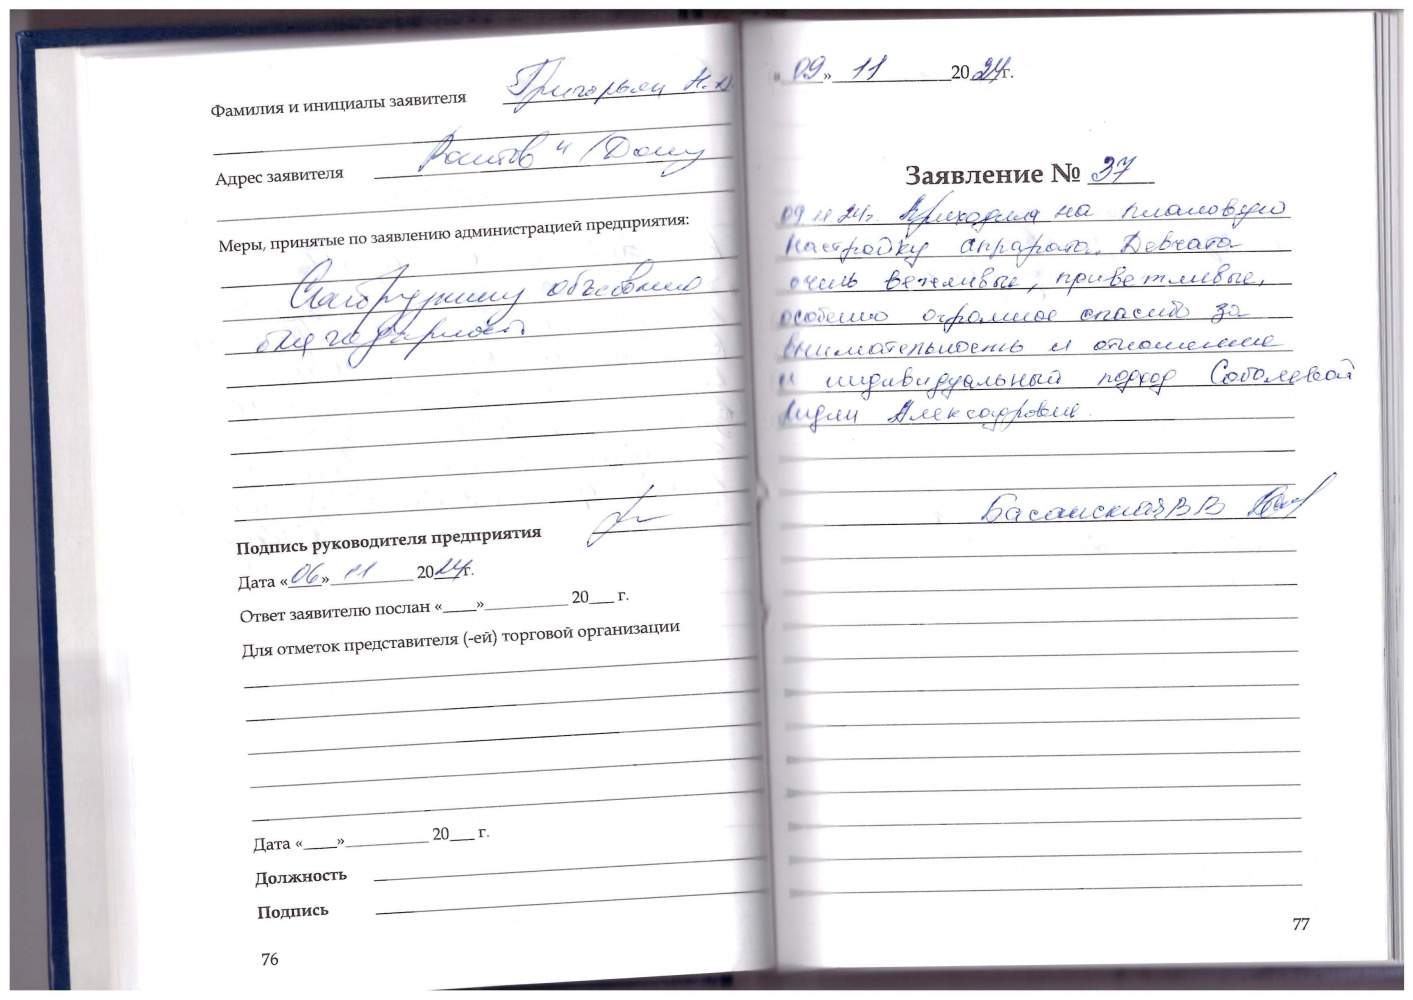 Фамилия и инициалы заявителя Григорьян Н.А.
Адрес заявителя Ростов н/Дону
Меры, принятые по заявлению администрацией предприятия:
Сотруднику объявлена
благодарность
Подпись руководителя предприятия
Дата «06» 11 2024г.
Ответ заявителю послан «____»__________ 20___ г.
Для отметок представителя (-ей) торговой организации
Дата «____»__________ 20___ г.
Должность
Подпись
76
«09» 11 2024г.
Заявление № 37
09 11 24г. Приходила на плановую
настройку аппарата. Девчата
очень вежливые, приветливые,
особенно огромное спасибо за
внимательность и отношение
и индивидуальный подход Соболевой
Лидии Александровне.
В.В.
77